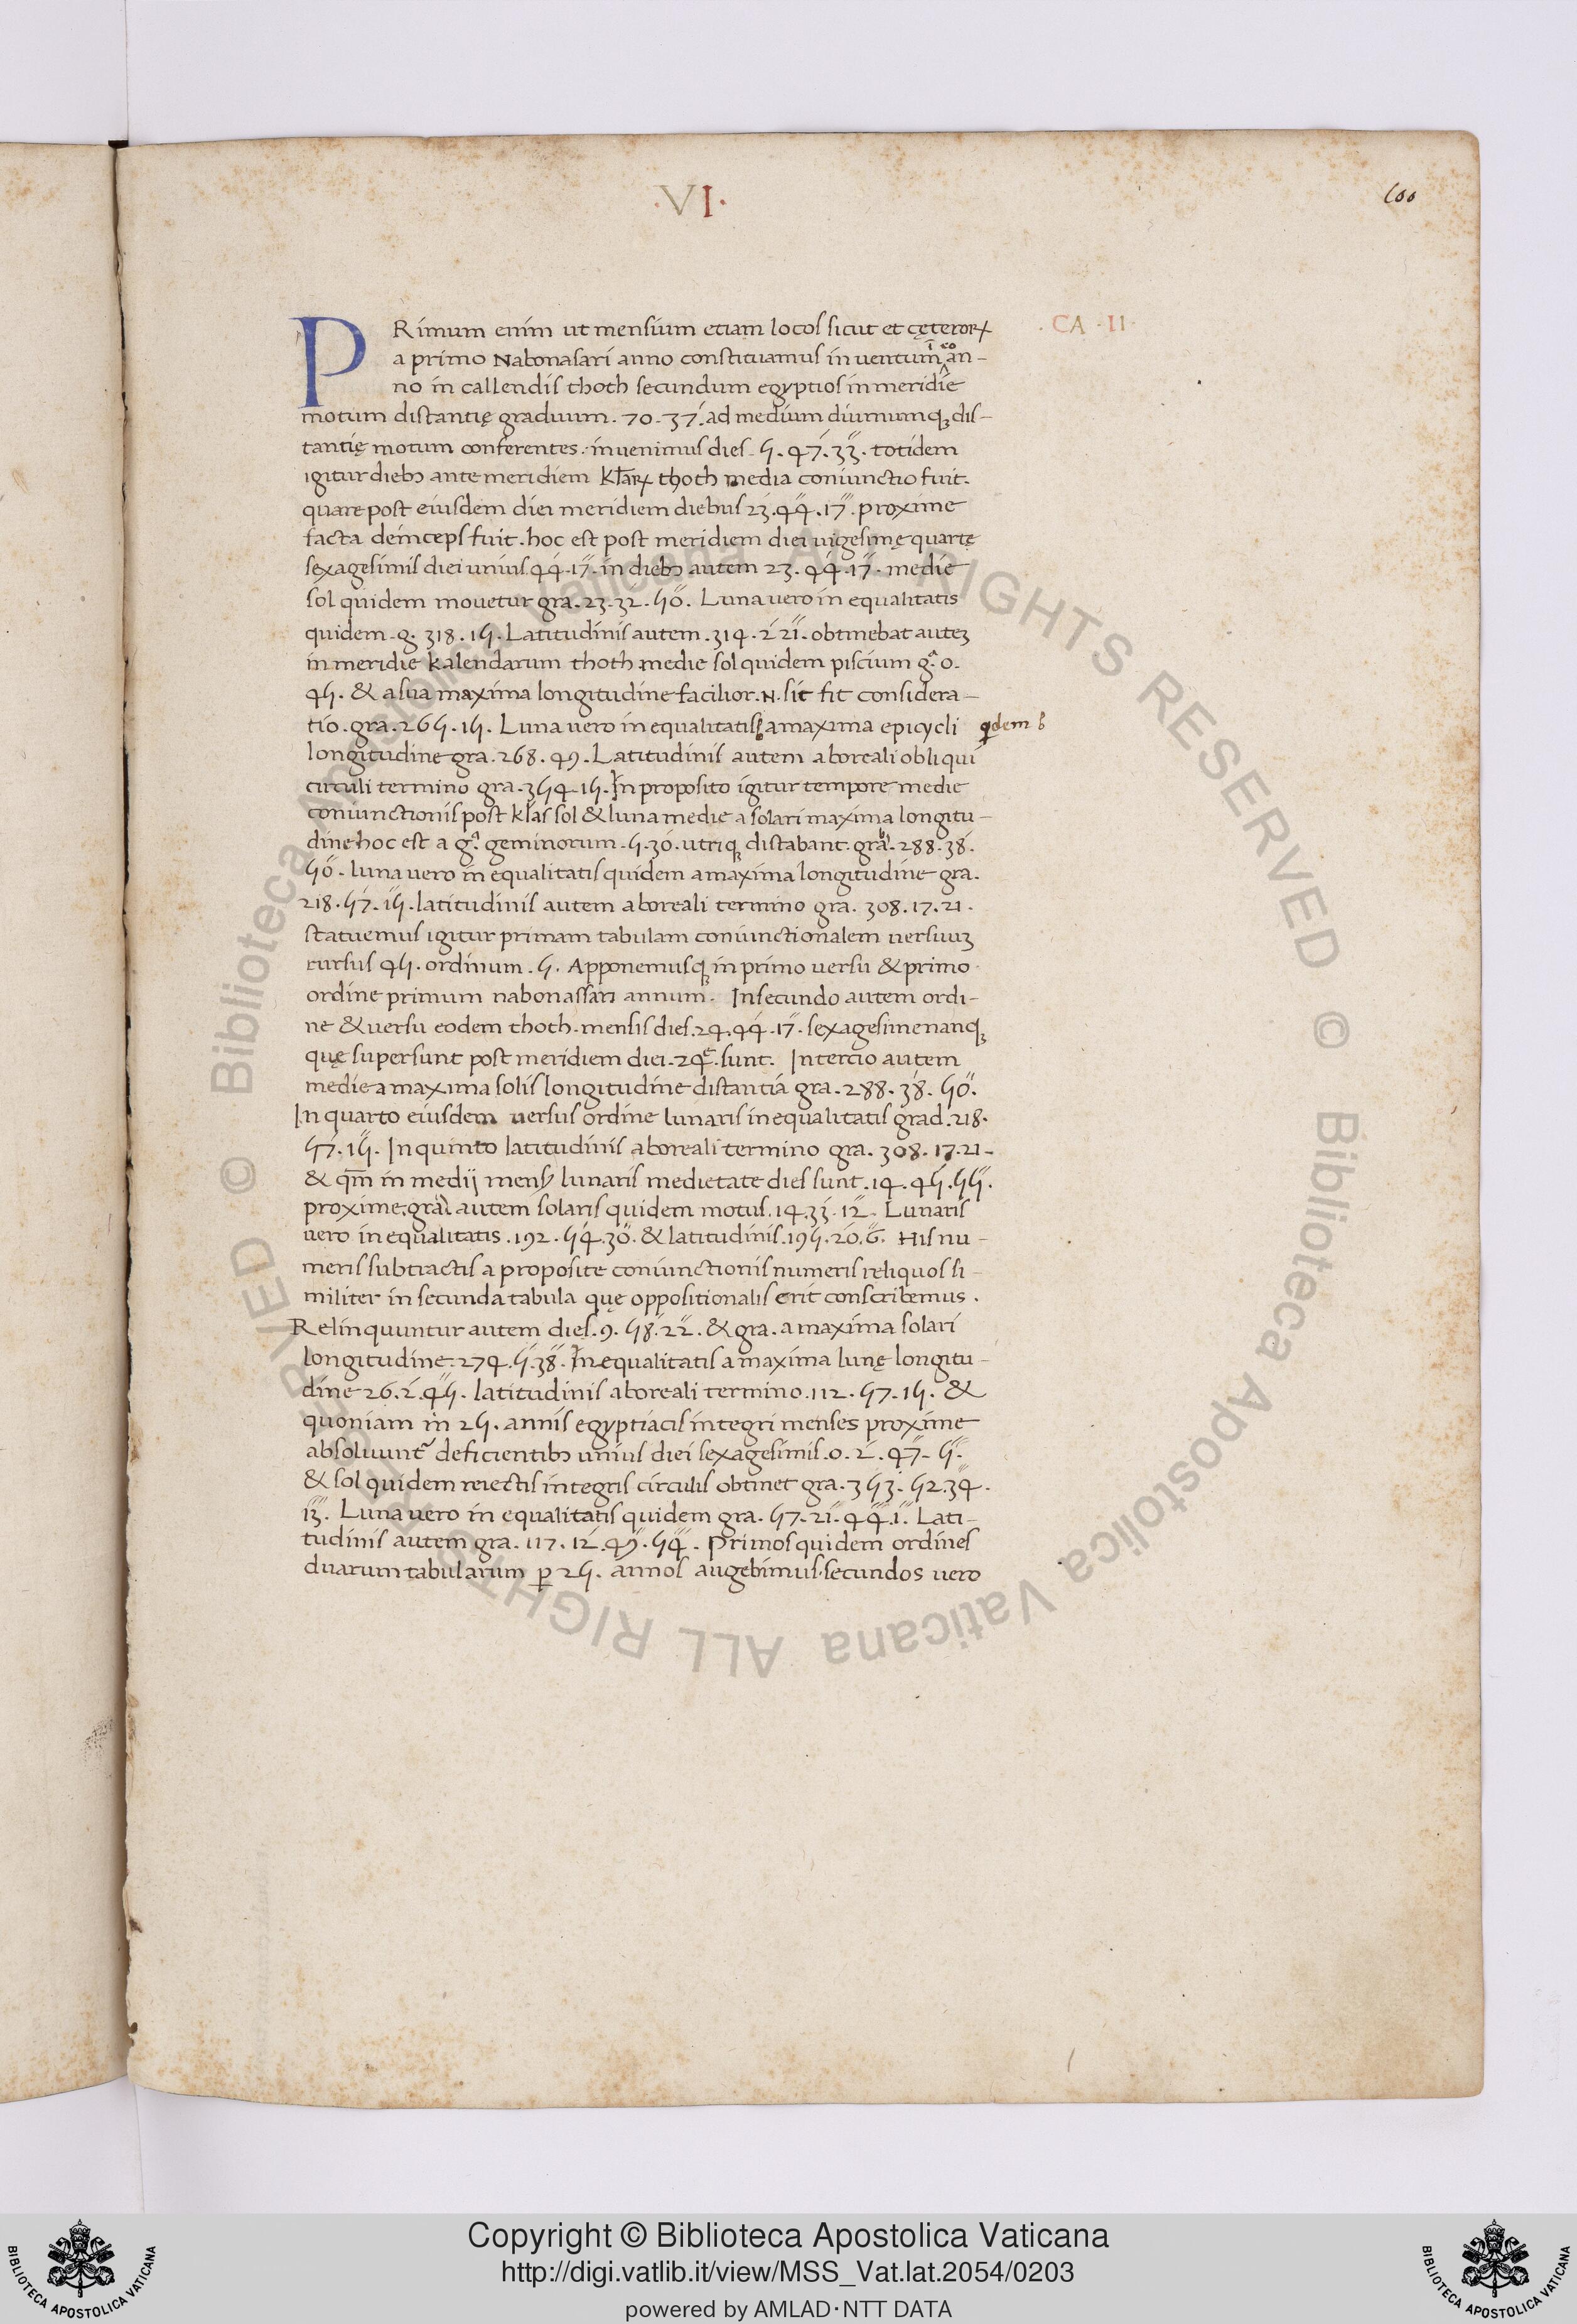 ·VI·
100
PRimum enim ut mensium etiam locos sicut et cęterorꝝ
·CA·II·
a primo Nabonasari anno constituamus inventum ī eo an-
no in callendis thoth secundum egyptios in meridie
motum distantię graduum. 70. 37. ad medium diurnumqꝫ dis-
tantię motum conferentes. invenimus dies. 5. 47. 33. totidem
igitur diebꝫ ante meridiem kl̅arꝝ thoth media coniunctio fuit.
quare post eiusdem diei meridiem diebus 23. 44. 17. proxime
facta deinceps fuit. hoc est post meridiem diei vigesimę quartę
sexagesimis diei unius 44. 17. in diebꝫ autem 23. 44. 17. medie
sol quidem movetur gra. 23. 32. 50. Luna vero inequalitatis
quidem. g. 318. 15. Latitudinis autem. 314. 2 21. obtinebat auteꝫ
in meridie kalendarum thoth medie sol quidem piscium g.ᵃ 0.
45. & a sua maxima longitudine facilior. N. sic fit considera-
tio. gra. 265. 15. Luna vero inequalitatis a maxima epicycli
qͥdem
longitudine gra. 268. 49. Latitudinis autem a boreali obliqui
circuli termino gra. 354 15. In proposito igitur tempore medie
coniunctionis post kl̅as sol & luna medie a solari maxima longitu-
dine hoc est a g.ᵃ geminorum. 5. 30. utriqꝫ distabant. gra. 288. 38.
50. luna vero inequalitatis quidem a maxima longitudine gra.
218. 57. 15. latitudinis autem a boreali termino gra. 308. 17. 21.
statuemus igitur primam tabulam coniunctionalem versuuꝫ
rursus 45. ordinum. 5. Apponemusqꝫ in primo versu & primo
ordine primum nabonassari annum. In secundo autem ordi-
ne & versu eodem thoth. mensis dies. 24. 44. 17. sexagesime nanqꝫ
quę supersunt post meridiem diei. 24ᵉ. sunt. In tercio autem
medie a maxima solis longitudine distantia gra. 288. 38. 50.
In quarto eiusdem versus ordine lunaris inequalitatis grad. 218.
57. 15. In quinto latitudinis a boreali termino gra. 308. 17. 21.
& qm̅ in medij mensꝭ lunaris medietate dies sunt. 14. 45. 55.
proxime. gra autem solaris quidem motus. 14. 33. 12. Lunaris
vero inequalitatis. 192. 54. 30. & latitudinis. 195. 20. 6. His nu-
meris subtractis a proposite coniunctionis numeris reliquos si-
militer in secunda tabula quę oppositionalis erit conscribemus.
Relinquuntur autem dies. 9. 58. 22. & gra. a maxima solari
longitudine. 274. 5. 38. Inequalitatis a maxima lunę longitu-
dine 26. 2. 45. latitudinis a boreali termino. 112. 57. 15. &
quoniam in 25. annis egyptiacis integri menses proxime
absoluunt᷑ deficientibꝫ unius diei sexagesimis. 0. 2. 47. 5.
& sol quidem reiectis integris circulis obtinet gra. 353. 52. 34.
13. Luna vero inequalitatis quidem gra. 57. 21. 44. 1. Lati-
tudinis autem gra. 117. 12. 49. 54. Primos quidem ordines
duarum tabularum ꝑ 25. annos augebimus. secundos vero
Copyright © Biblioteca Apostolica Vaticana
http://digi.vatlib.it/view/MSS_Vat.lat.2054/0203
powered by AMLAD·NTT DATA
BIBLIOTECA APOSTOLICA VATICANA
BIBLIOTECA APOSTOLICA VATICANA
© Biblioteca Apostolica Vaticana ALL RIGHTS RESERVED
© Biblioteca Apostolica Vaticana ALL RIGHTS RESERVED